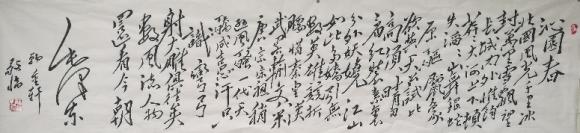 沁園春
北國風光千里冰
封萬里雪飄望
長城內外惟餘
莽莽大河上下頓
失滔滔山舞銀蛇
原驅蠟象
欲與天公試比
高須晴日
看紅裝素裹
分外妖嬈江山
如此多嬌引無
數英雄競折
腰惜秦皇漢
武略輸文采
唐宗宋祖稍
遜風騷一代天
驕成吉思汗只
識彎弓
射大雕俱往矣
數風流人物
還看今朝
毛澤東
敬臨